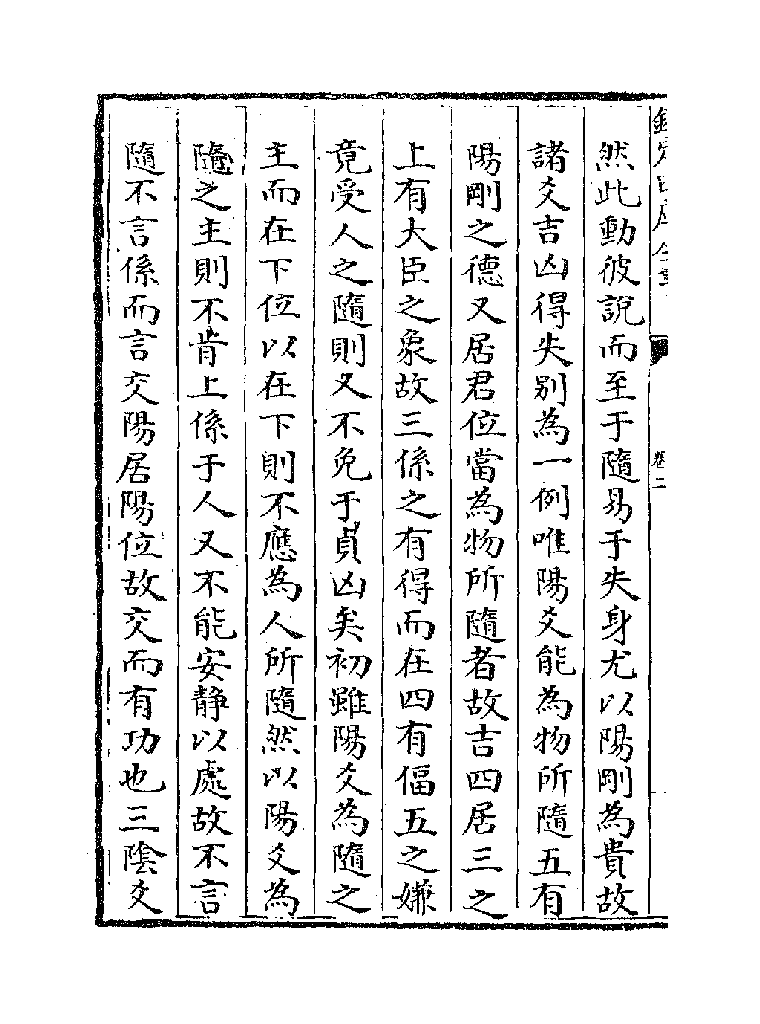 欽定四庫全書
卷二
然此動彼説而至于隨易于失身尤以陽剛為貴故
諸爻吉凶得失别為一例唯陽爻能為物所隨五有
陽剛之德又居君位當為物所隨者故吉四居三之
上有大臣之象故三係之有得而在四有偪五之嫌
竟受人之隨則又不免于貞凶矣初雖陽爻為隨之
主而在下位以在下則不應為人所隨然以陽爻為
隨之主則不肯上係于人又不能安靜以處故不言
隨不言係而言交陽居陽位故交而有功也三陰爻